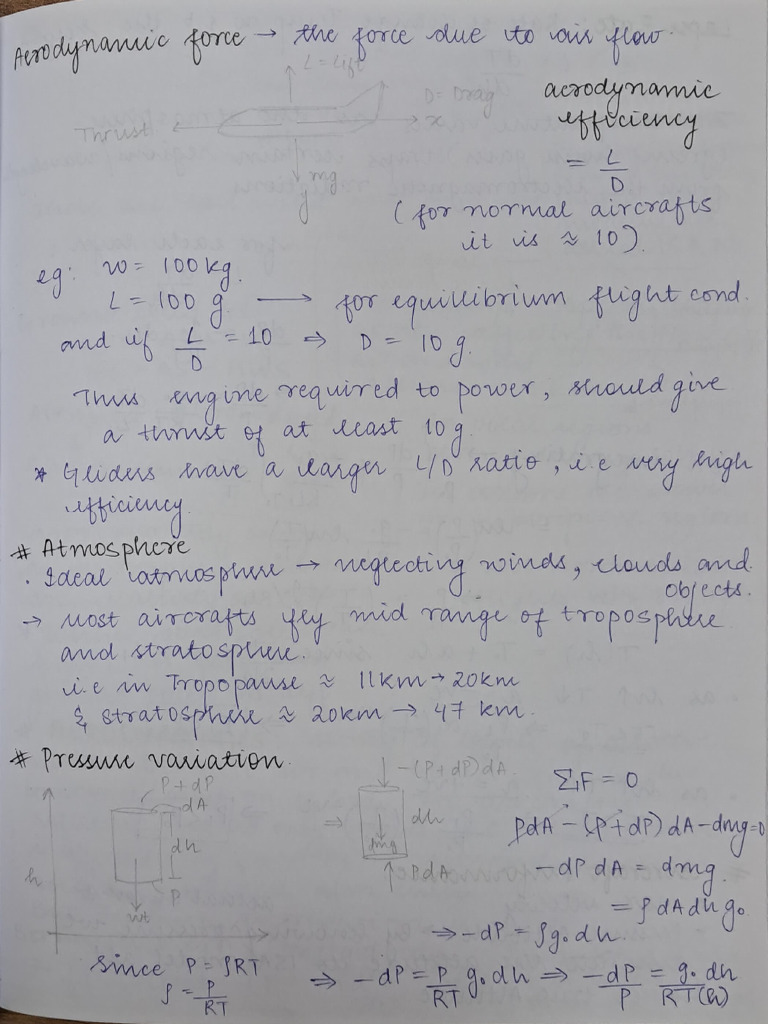 Aerodynamic force → the force due to air flow.
L = Lift
D = Drag
Thrust
x
mg
aerodynamic
efficiency
= L/D
(for normal aircrafts
it is ≈ 10)
eg: w = 100 kg.
L = 100 g → for equillibrium flight cond.
and if L/D = 10 ⇒ D = 10 g.
Thus engine required to power, should give
a thrust of at least 10 g.
* Gliders have a larger L/D ratio, i.e very high
efficiency.
# Atmosphere
. Ideal atmosphere → neglecting winds, clouds and
objects.
→ Most aircrafts fly mid range of troposphere
and stratosphere.
i.e in Tropopause ≈ 11km → 20km
& stratosphere ≈ 20km → 47 km.
# Pressure variation.
P + dP
dA
dh
P
wt
h
⇒
-(P+dP)dA
dh
dmg
PdA
ΣF = 0
PdA - (P+dP) dA - dmg = 0
-dP dA = dmg
= ρ dA dh g₀
⇒ -dP = ρg₀ dh
since P = ρRT
ρ = P/RT
⇒ -dP = P/RT g₀ dh ⇒ -dP/P = g₀ dh/RT(h)